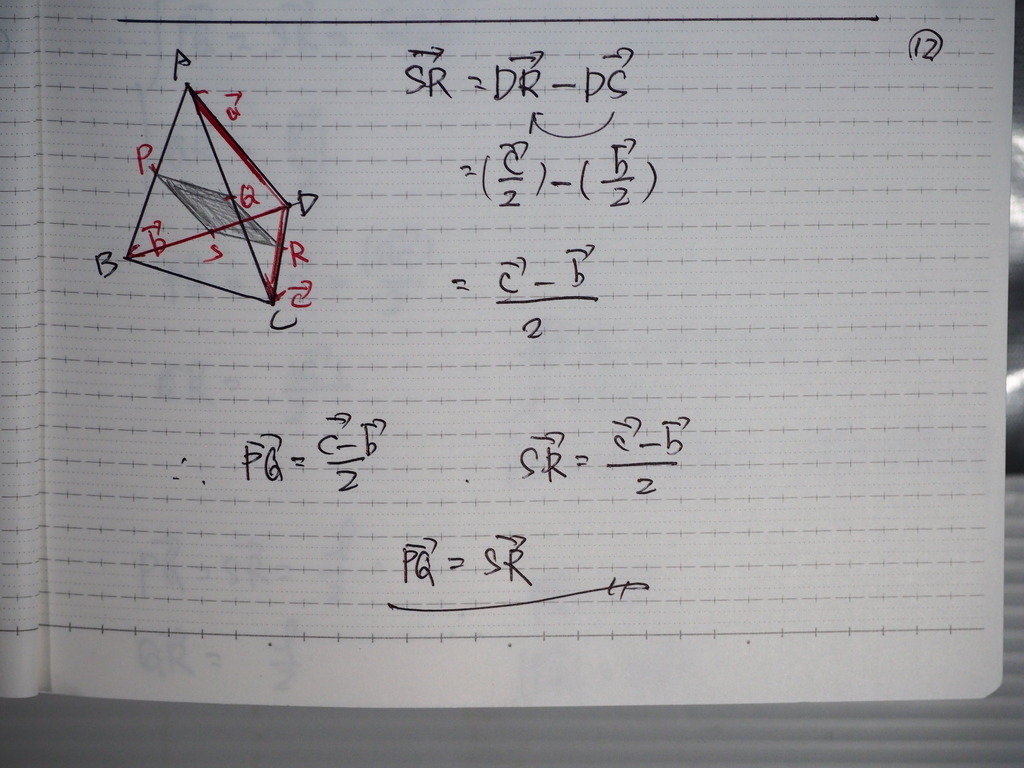 ⑫
A
a⃗
P
Q
D
b⃗
S
R
B
c⃗
C
SR⃗ = DR⃗ − DS⃗
= (c⃗/2) − (b⃗/2)
= (c⃗ − b⃗)/2
∴ PQ⃗ = (c⃗ − b⃗)/2 . SR⃗ = (c⃗ − b⃗)/2
PQ⃗ = SR⃗